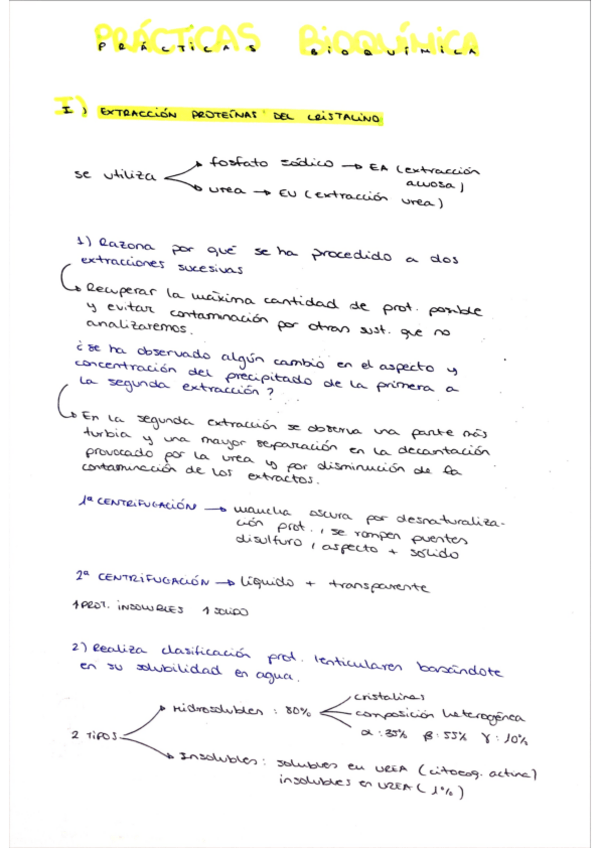 PRÁCTICAS BIOQUÍMICA
PRÁCTICAS BIOQUÍMICA
I) EXTRACCIÓN PROTEÍNAS DEL CRISTALINO
se utiliza
fosfato sódico → EA (extracción acuosa)
urea → EU (extracción urea)
1) Razona por qué se ha procedido a dos
extracciones sucesivas
Recuperar la máxima cantidad de prot. posible
y evitar contaminación por otras sust. que no
analizaremos.
¿se ha observado algún cambio en el aspecto y
concentración del precipitado de la primera a
la segunda extracción?
En la segunda extracción se observa una parte más
turbia y una mayor separación en la decantación
provocado por la urea y por disminución de la
contaminación de los extractos.
1ª CENTRIFUGACIÓN → mancha oscura por desnaturaliza-
ción prot., se rompen puentes
disulfuro, aspecto + sólido
2ª CENTRIFUGACIÓN → líquido + transparente
↑PROT. INSOLUBLES ↑SOLIDO
2) Realiza clasificación prot. lenticulares basándote
en su solubilidad en agua.
2 TIPOS
Hidrosolubles: 80%
cristalinas
composición heterogénea
α: 35% β: 55% γ: 10%
Insolubles: solubles en UREA (citoesq. actina)
insolubles en UREA (1%)